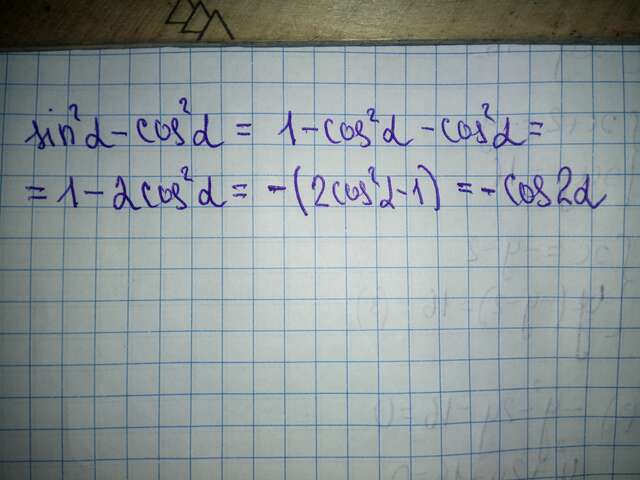 sin²α - cos²α = 1 - cos²α - cos²α =
= 1 - 2cos²α = -(2cos²α - 1) = -cos2α